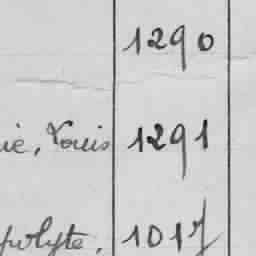 1290
ie, Louis 1291
polyte, 1017